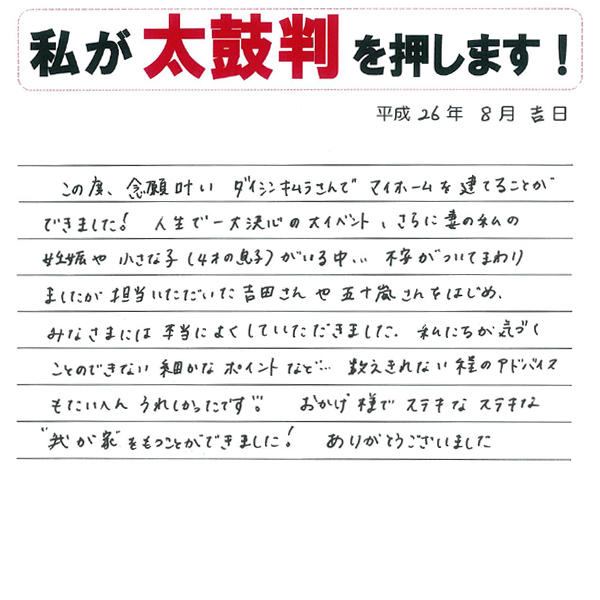 私が太鼓判を押します！
平成26年 8月 吉日
この度、念願叶い ダイシンキムラさんで マイホームを建てることが
できました! 人生で一大決心の大イベント、さらに妻の私の
妊娠や 小さな子(4才の息子)がいる中… 不安がついてまわり
ましたが 担当いただいた 吉田さん や 五十嵐さんをはじめ、
みなさまには 本当によくしていただきました. 私たちが気づく
ことのできない 細かな ポイントなど… 数えきれない 程のアドバイス
もたいへん うれしかったです!! おかげ様で ステキな ステキな
"我が家"をもつことができました! ありがとうございました